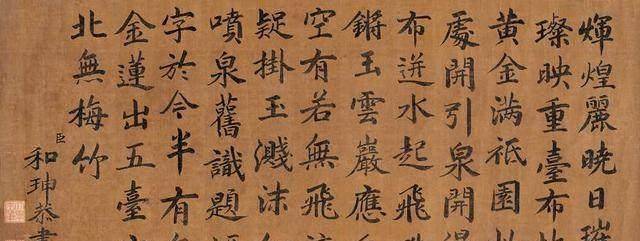 煇煌麗曉日璀
璨映重臺布地
黃金滿祇園
處開引泉開得
布迸水起飛
鏘玉雲巖應
空有若無飛流
疑掛玉濺沫
噴泉舊識題
字於今半有
金蓮出五臺
北無梅竹
臣和珅恭書